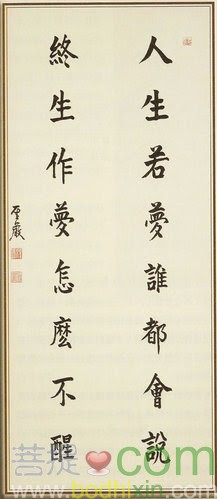 人生若夢誰都會說
終生作夢怎麼不醒
聖嚴
菩提❤com
www.bodhixin.com